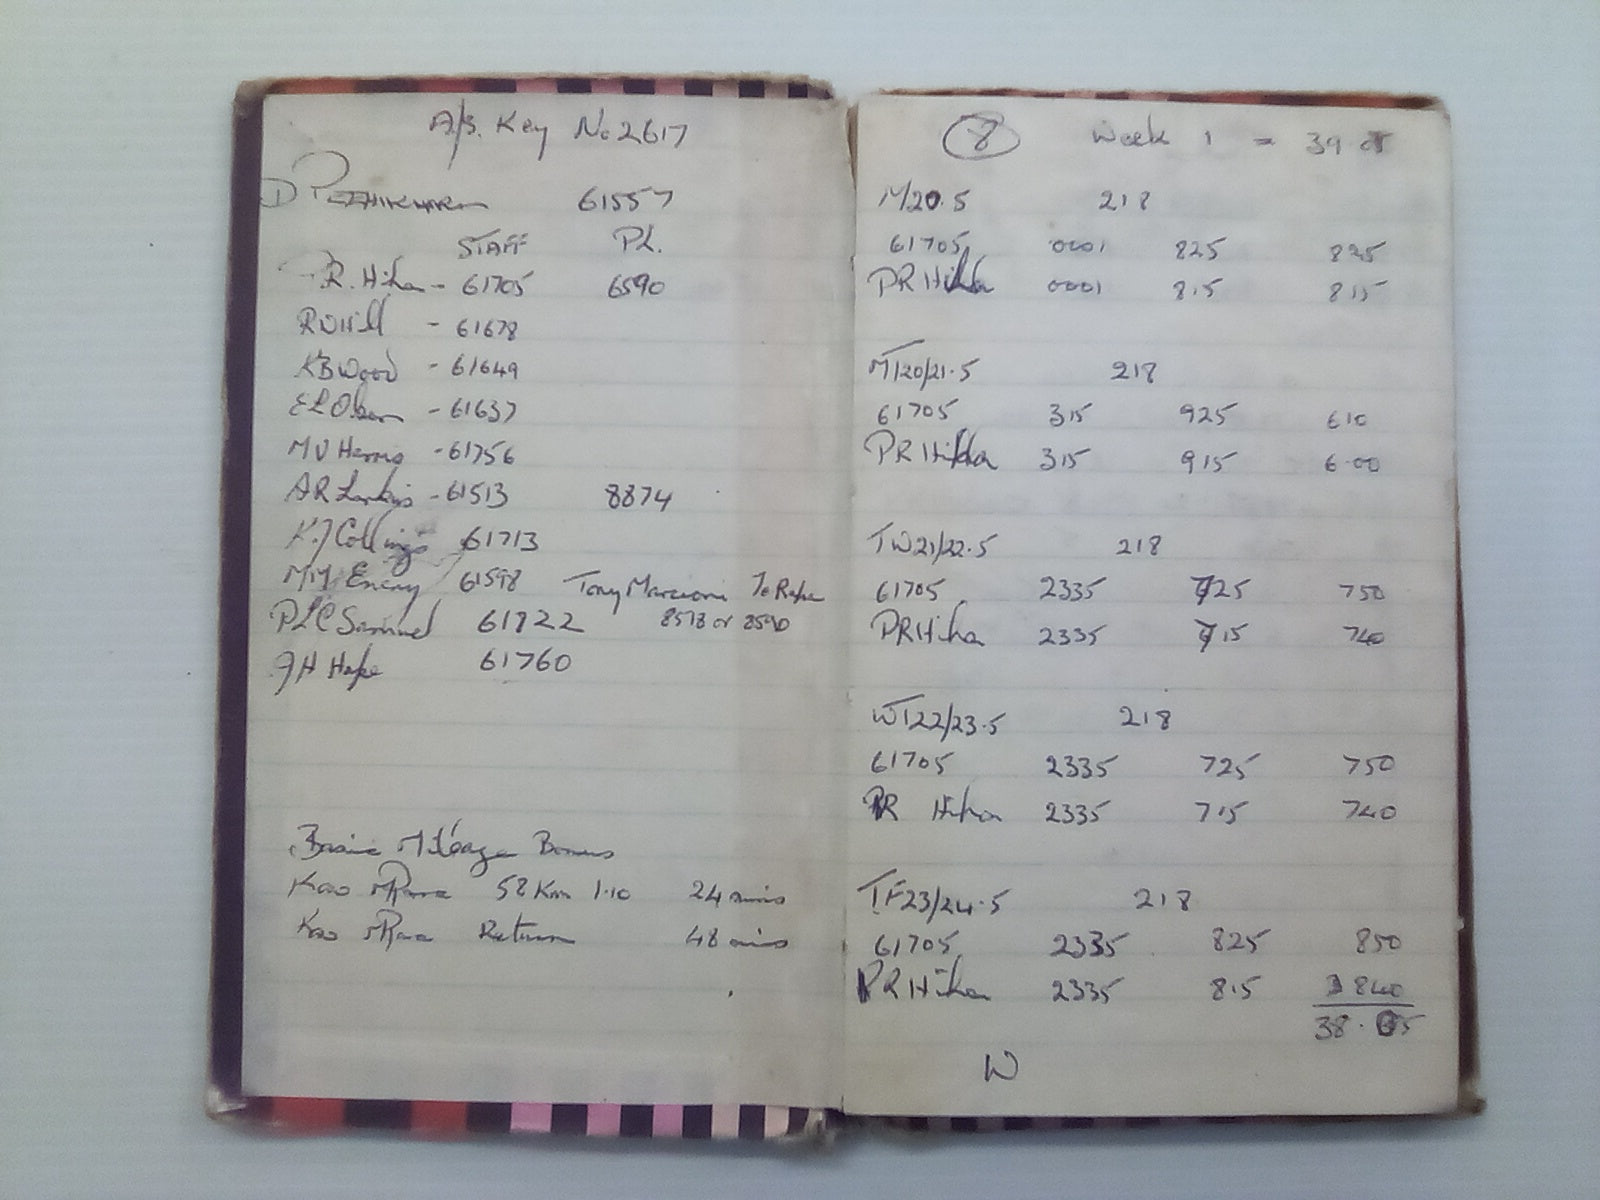 A/B. Key No 2617
D 61557
STAFF PL.
P.R. - 61705 6590
R W Hill - 61678
K B Wood - 61649
E L - 61637
M V Harris - 61756
A R Larkins - 61513 8874
K J Collings 61713
M M Emery 61598 Tony
P L C Samuel 61822 8578 or 8590
J H Hope 61760
Basic Mileage Bonus
58 Km 1.10 24 mins
Return 48 mins
8 Week 1 = 39.05
M/20.5 218
61705 0001 825 825
PR 0001 815 815
MT20/21.5 218
61705 315 925 610
PR 315 915 6.00
TW21/22.5 218
61705 2335 725 750
PR 2335 715 740
WT22/23.5 218
61705 2335 725 750
PR 2335 715 740
TF23/24.5 218
61705 2335 825 850
PR 2335 815 840
38.05
W